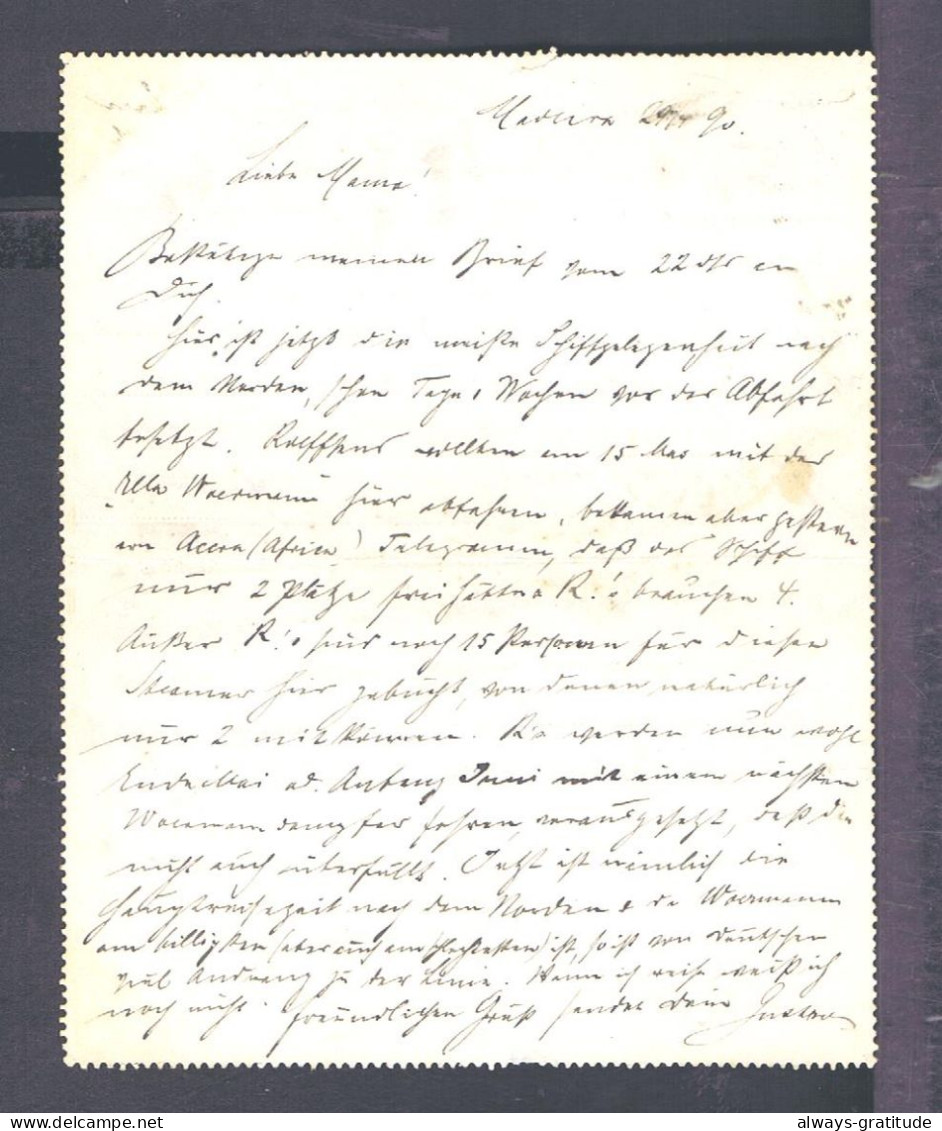 Madeira 29/4 90.
Liebe Mama!
Bestätige meinen Brief vom 22 dts an
Dich.
Hier ist jetzt die meiste Schiffgelegenheit nach
dem Norden, schon Tage & Wochen vor der Abfahrt
besetzt. Rolffsens wollten am 15 Mai mit der
"Ella Woermann" hier abfahren, bekamen aber gestern
von Accra (Africa) Telegramm, daß das Schiff
nur 2 Plätze frei hätte & R.'s brauchen 4.
Außer R.'s sind noch 15 Personen für diesen
Steamer hier gebucht, von denen natürlich
nur 2 mitkönnen. R.'s werden nun wohl
Ende Mai od. Anfang Juni mit einem nächsten
Woermanndampfer fahren, vorausgesetzt, daß der
nicht auch überfüllt. Jetzt ist nämlich die
Hauptreisezeit nach dem Norden & da Woermann
am billigsten (aber auch am schlechtesten) ist, so ist von Deutschen
viel Andrang zu der Linie. Wann ich reise weiß ich
noch nicht. Freundlichen Gruß sendet Dein Gustav
always-gratitude